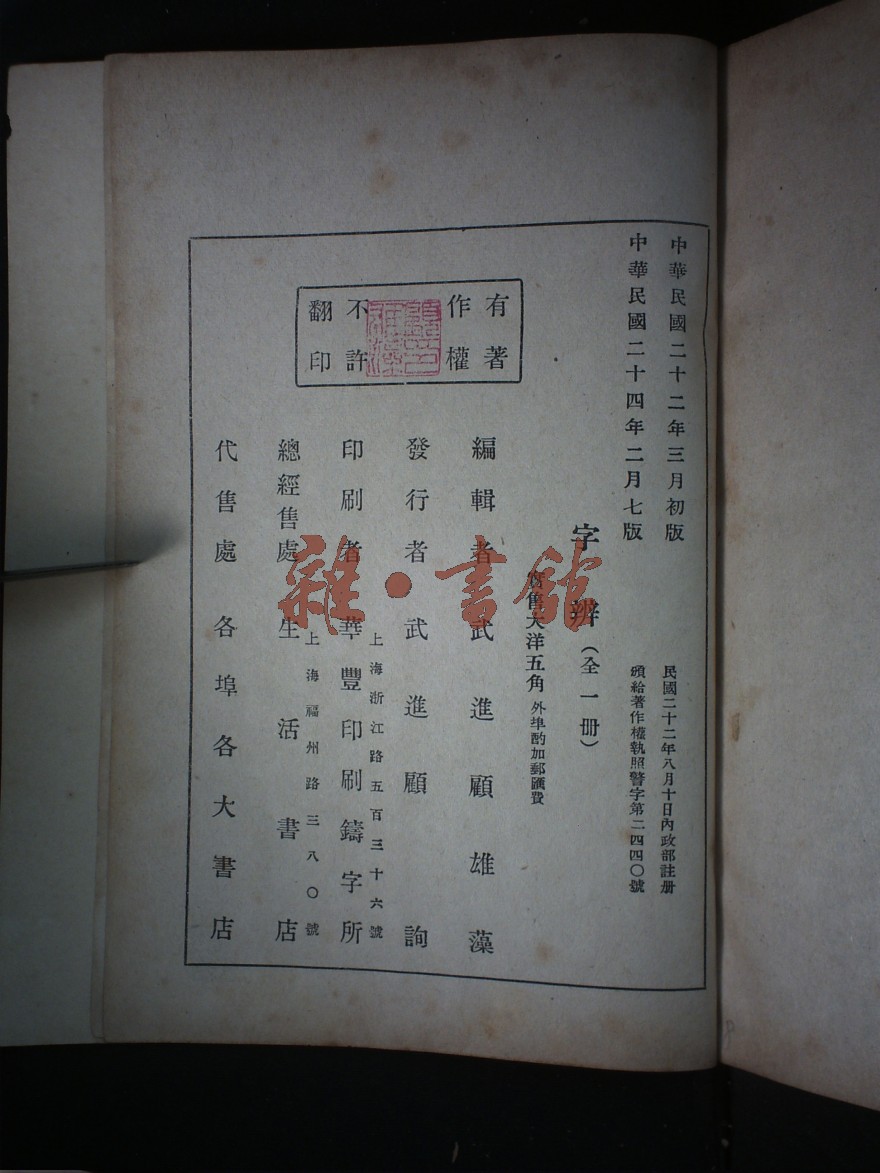 中華民國二十二年三月初版
中華民國二十四年二月七版
民國二十二年八月十日內政部註册
頒給著作權執照警字第二四四〇號
字辨(全一册)
售大洋五角 外埠酌加郵匯費
有著
作權
不許
翻印
編輯者 武進顧雄藻
發行者 武進顧詢
印刷者 華豐印刷鑄字所
上海浙江路五百三十六號
總經售處 生活書店
上海福州路三八〇號
代售處 各埠各大書店
雜·書館